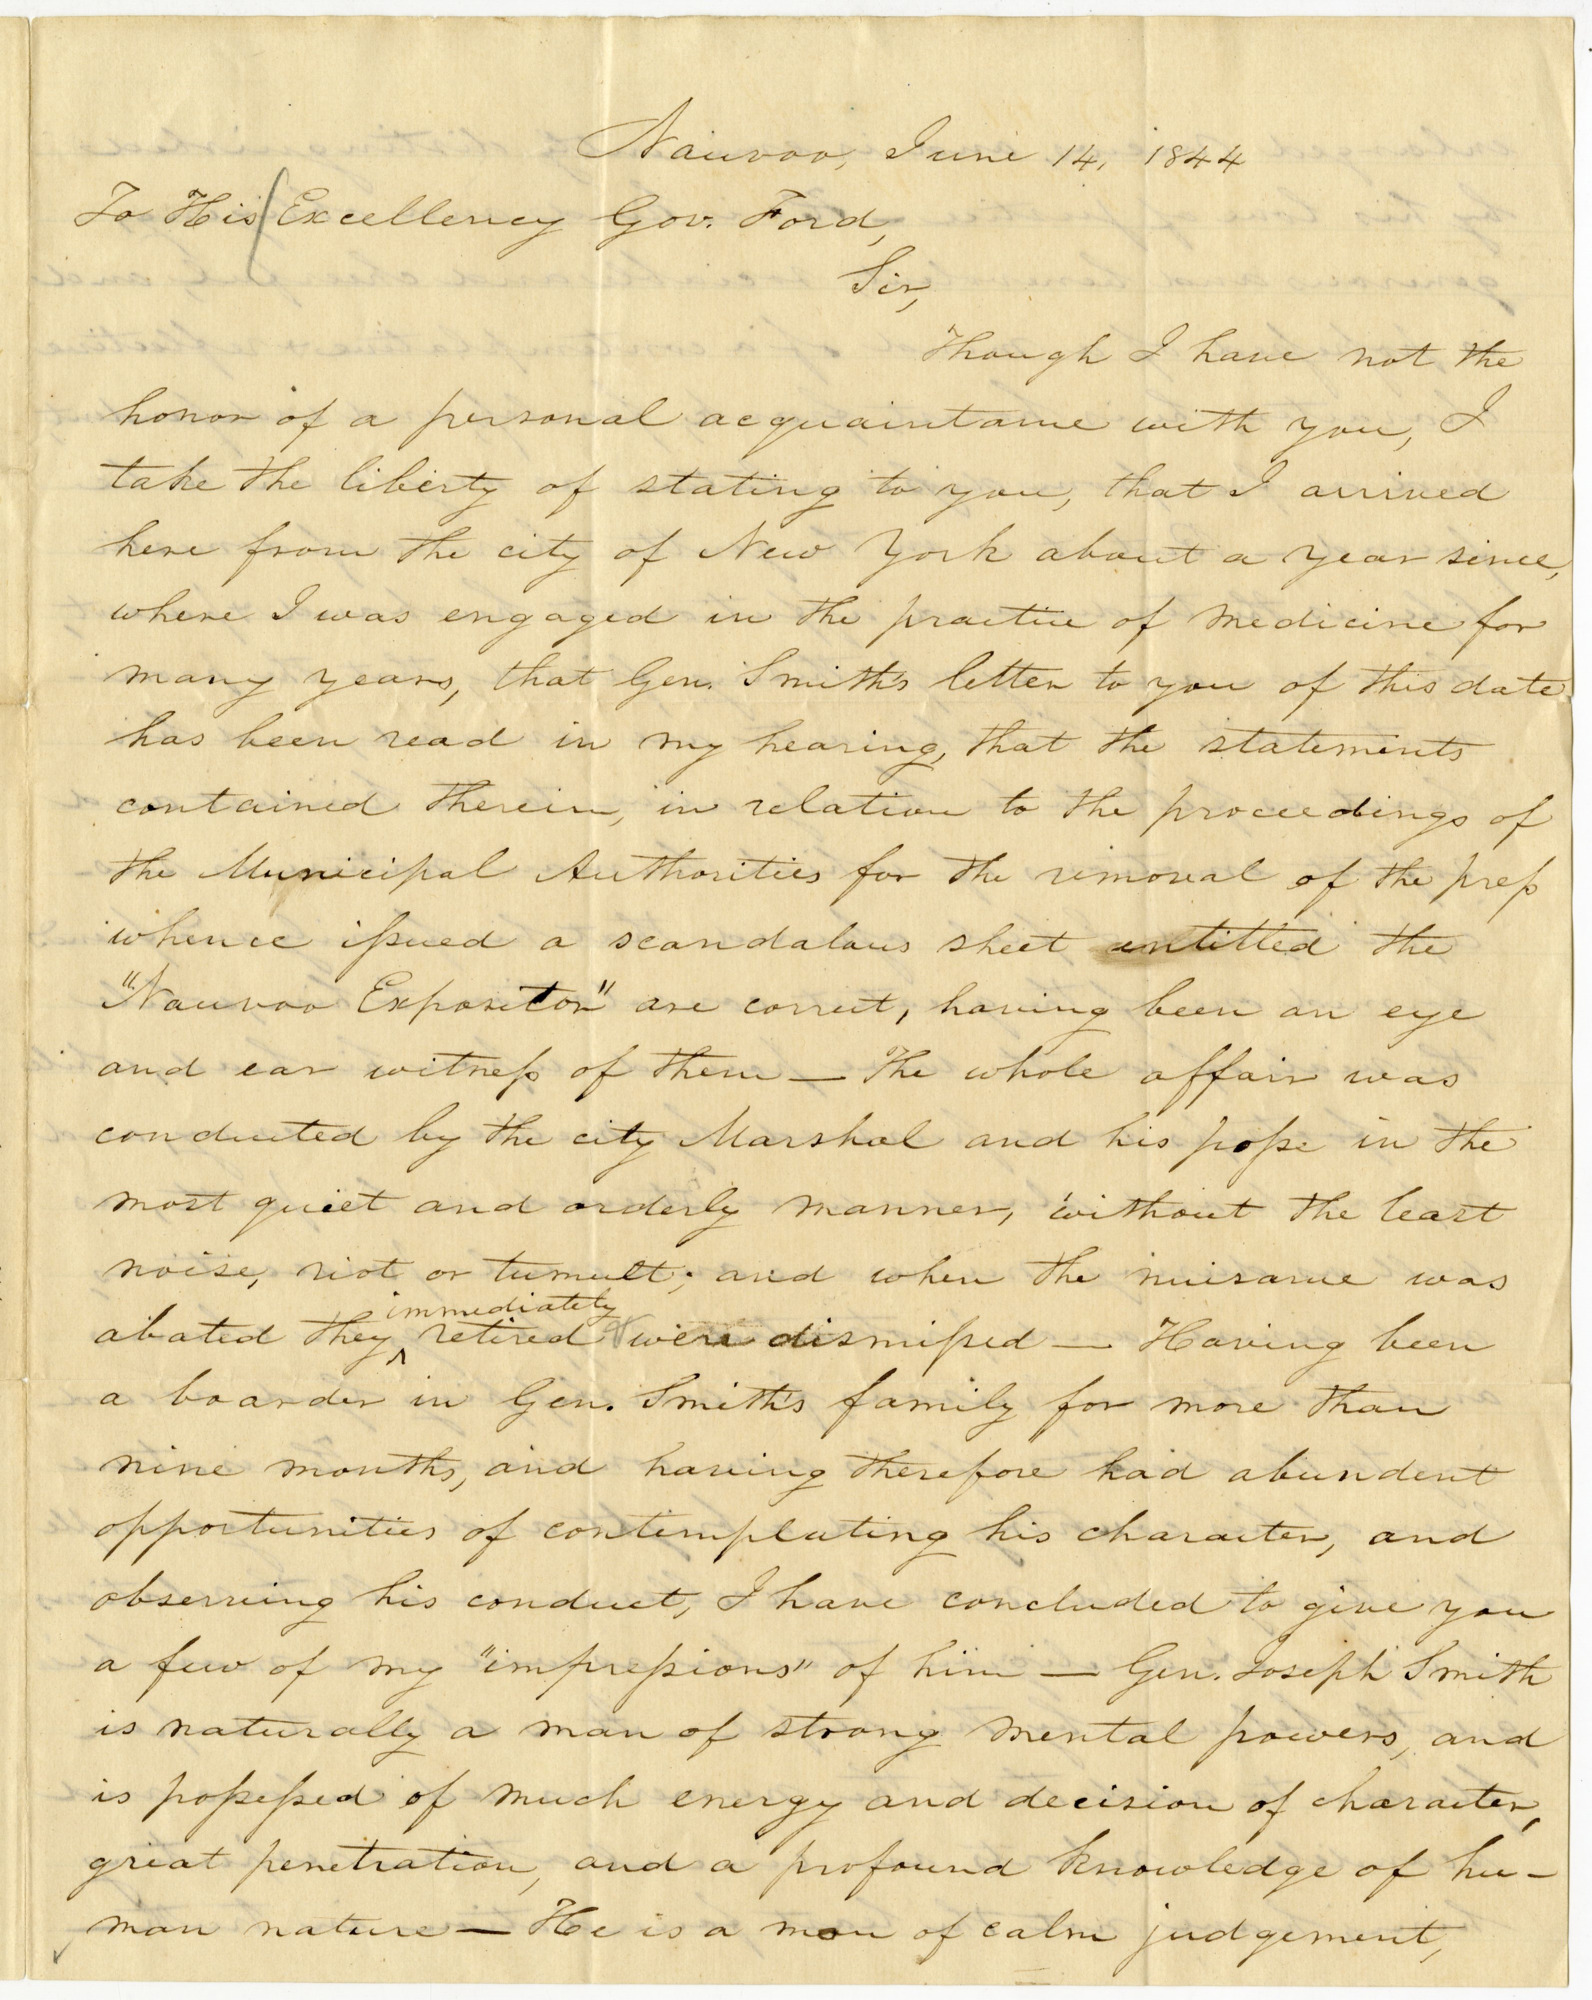 Nauvoo, June 14, 1844
To His Excellency Gov. Ford,
Sir,
Though I have not the
honor of a personal acquaintance with you, I
take the liberty of stating to you, that I arrived
here from the city of New York about a year since,
where I was engaged in the practice of medicine for
many years, that Gen. Smith's letter to you of this date
has been read in my hearing, that the statements
contained therein, in relation to the proceedings of
the Municipal Authorities for the removal of the press
whence issued a scandalous sheet entitled the
"Nauvoo Expositor" are correct, having been an eye
and ear witness of them — The whole affair was
conducted by the city Marshal and his posse in the
most quiet and orderly manner, without the least
noise, riot or tumult; and when the nuisance was
immediately
abated they ^ retired & were dismissed — Having been
a boarder in Gen. Smith's family for more than
nine months, and having therefore had abundent
opportunities of contemplating his character, and
observing his conduct, I have concluded to give you
a few of my "impressions" of him — Gen. Joseph Smith
is naturally a man of strong mental powers, and
is possessed of much energy and decision of character,
great penetration, and a profound knowledge of hu-
man nature — He is a man of calm judgement,